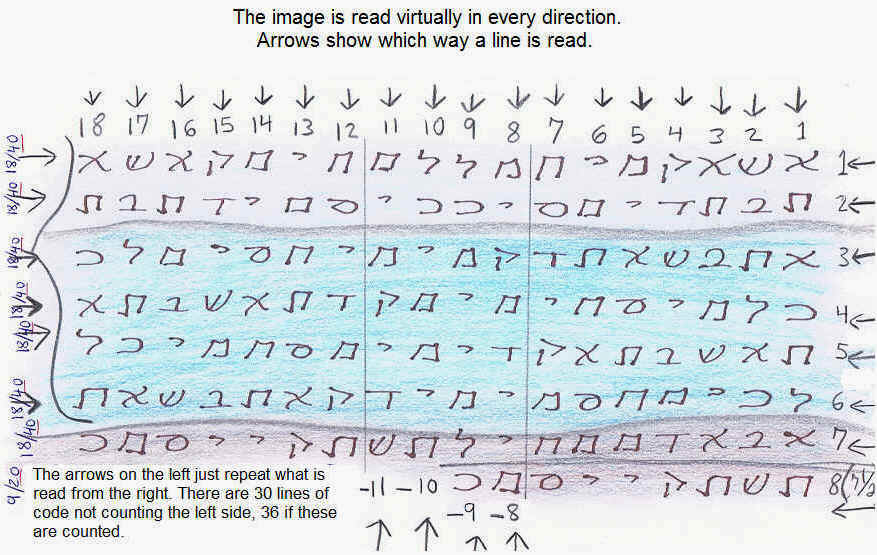 The image is read virtually in every direction.
Arrows show which way a line is read.
18 17 16 15 14 13 12 11 10 9 8 7 6 5 4 3 2 1
18/40 א ש א ק מ י ח מ ל ל מ ח י מ ק א ש א 1
18/40 ת ב ת ד י מ ס י כ כ י ס מ י ד ת ב ת 2
18/40 א ת ב ש א ת ד ק מ י מ י ח ס י מ ל כ 3
18/40 כ ל מ י ס ח י מ י מ ק ד ת א ש ב ת א 4
18/40 ת א ש ב ת א ק ד י מ י מ ס ח מ י כ ל 5
18/40 ל כ י מ ח ס מ י מ י ד ק א ת ב ש א ת 6
18/40 א ב א ד מ מ ח י ל ת ש ת ק י י ס מ כ 7
9/20 ת ש ת ק י י ס מ כ 8(7½
The arrows on the left just repeat what is
read from the right. There are 30 lines of
code not counting the left side, 36 if these
are counted.
-11 -10
-9 -8